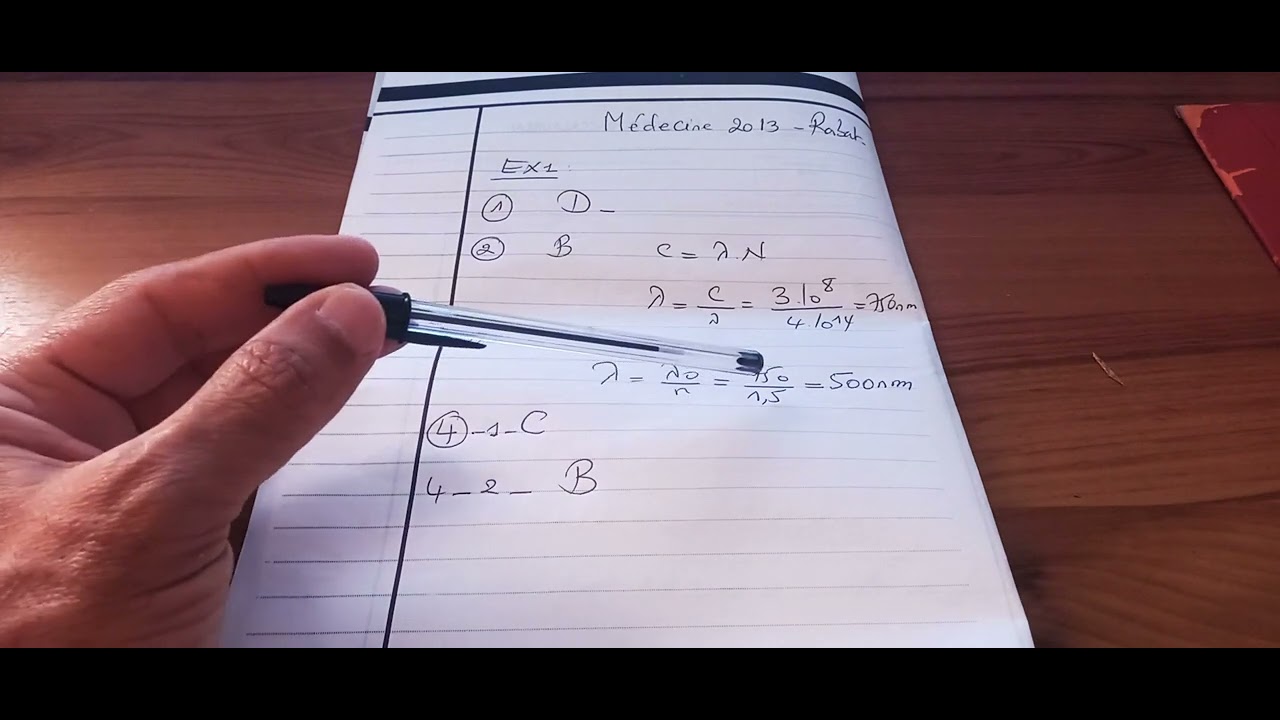 Médecine 2013 - Rabat.
Ex1:
① D -
② B C = λ.N
λ = C/λ = 3.10⁸/4.10¹⁴ = 750nm
λ = λ0/n = 750/1,5 = 500nm
④ - 1 - C
4 - 2 - B